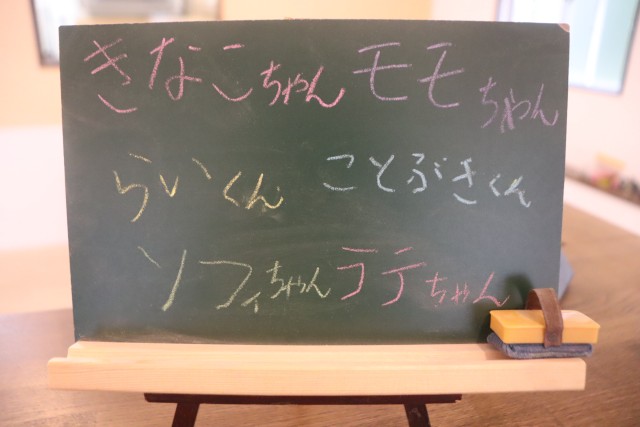 きなこちゃん モモちゃん
らいくん ことぶきくん
ソフィちゃん ラテちゃん